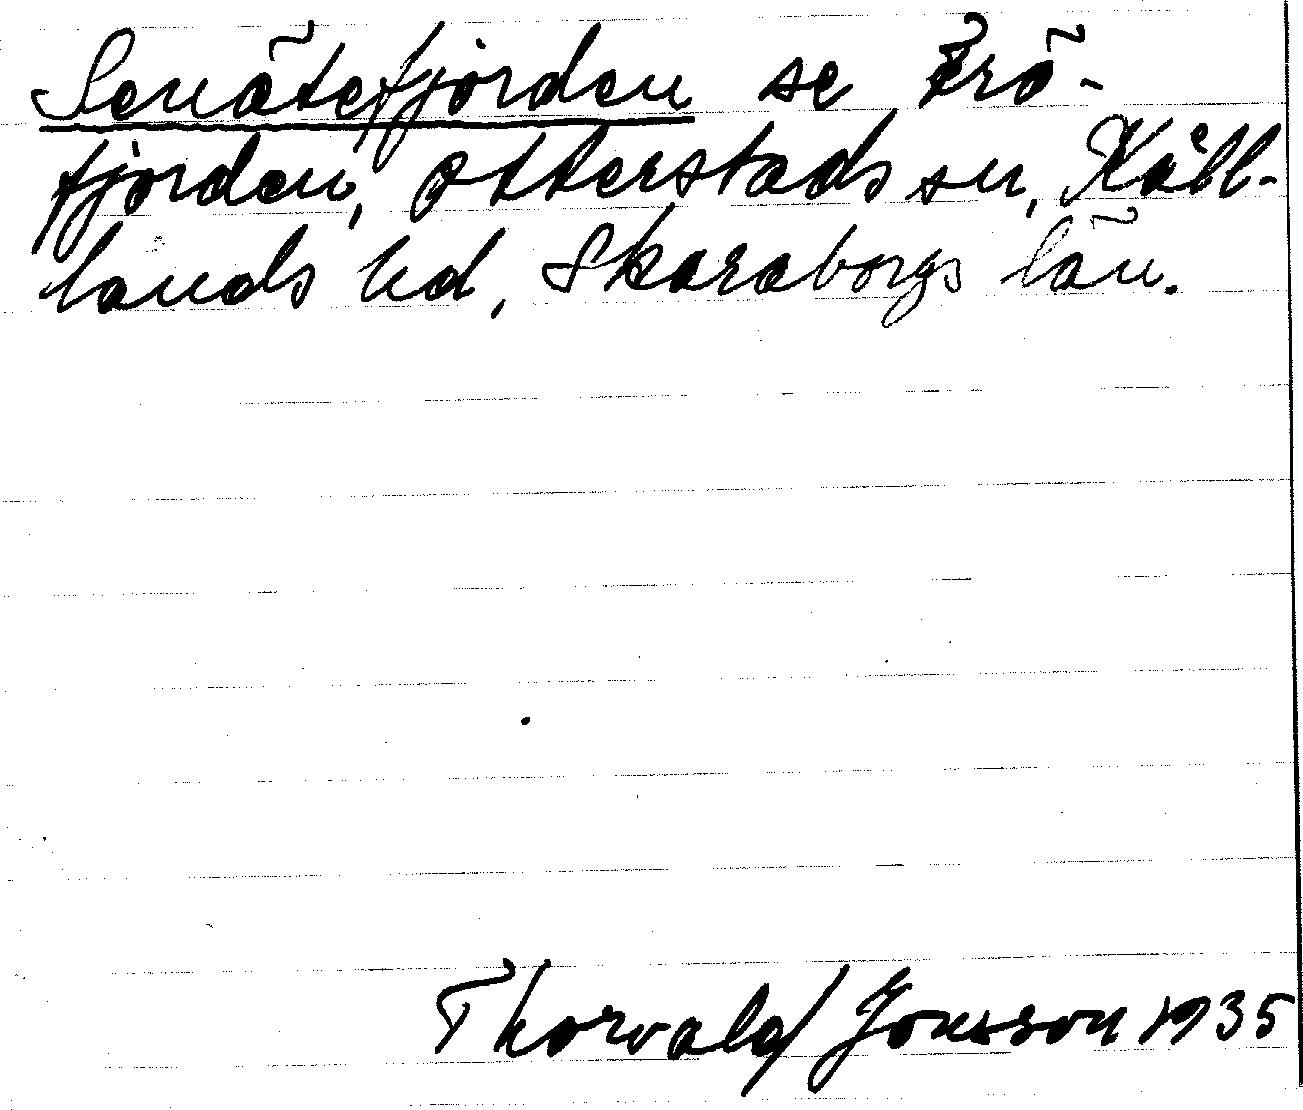 Senätefjorden se Frö-
fjorden, Otterstads sn, Kåll-
lands hd, Skaraborgs län.
Thorvald Jonsson 1935